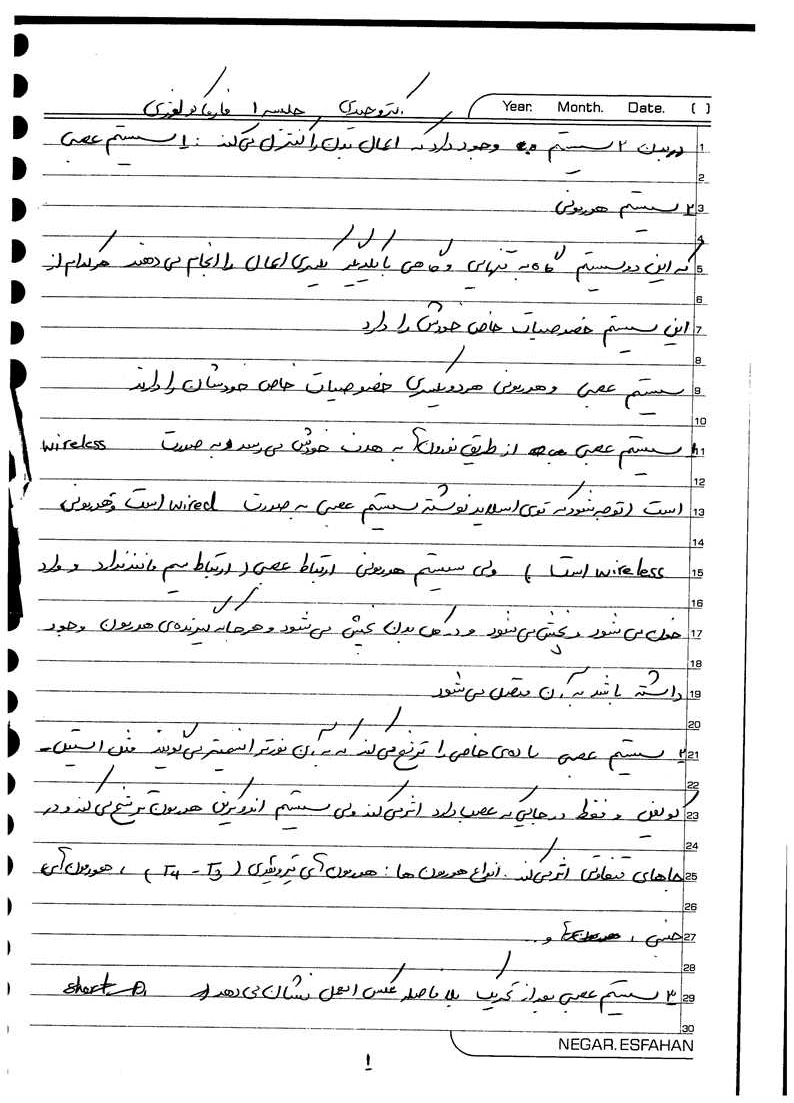 Year. Month. Date. ( )
جلسه ۱ فارماکولوژی
1 در بدن ۲ سیستم وجود دارد که اعمال بدن را کنترل می کند : ۱ سیستم عصبی
2
3 ۲ سیستم هورمونی
4
5 که این دو سیستم گاه به تنهایی و گاهی با یکدیگر اعمال را انجام می دهند هرکدام از
6
7 این سیستم خصوصیات خاص خودش را دارد
8
9 سیستم عصبی و هورمونی هردو خصوصیات خاص خودشان را دارند
10
11 ۱ سیستم عصبی از طریق نورون ها به هدف خودش می رسد و به صورت wireless
12
13 است (توجه شود که توی اسلاید نوشته سیستم عصبی به صورت wired است و هورمونی
14
15 wireless است ) ولی سیستم هورمونی ارتباط عصبی (ارتباط سیم مانند ندارد و وارد
16
17 خون می شود و پخش می شود و در کل بدن پخش می شود و هر جا که گیرنده ی هورمون وجود
18
19 داشته باشد به آن متصل می شود
20
21 ۲ سیستم عصبی ماده ی خاصی را ترشح می کند که به آن نوروترانسمیتر می گویند مثل استیل-
22
23 کولین و فقط در جایی که عصب دارد اثر می کند ولی سیستم اندوکرین هورمون ترشح می کند و در
24
25 جاهای متفاوتی اثر می کند . انواع هورمون ها : هورمون های تیروئیدی (T4 - T3) ، هورمون های
26
27 جنسی ، و ..
28
29 ۳ سیستم عصبی بعد از تحریک بلافاصله عکس العمل نشان می دهد
30
NEGAR.ESFAHAN
۱